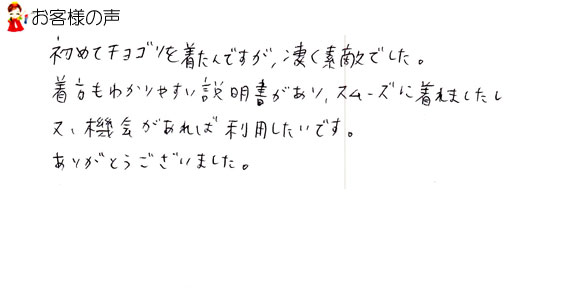 お客様の声
初めてチョゴリを着たんですが、凄く素敵でした。
着方もわかりやすい説明書があり、スムーズに着れましたし
又、機会があれば利用したいです。
ありがとうございました。